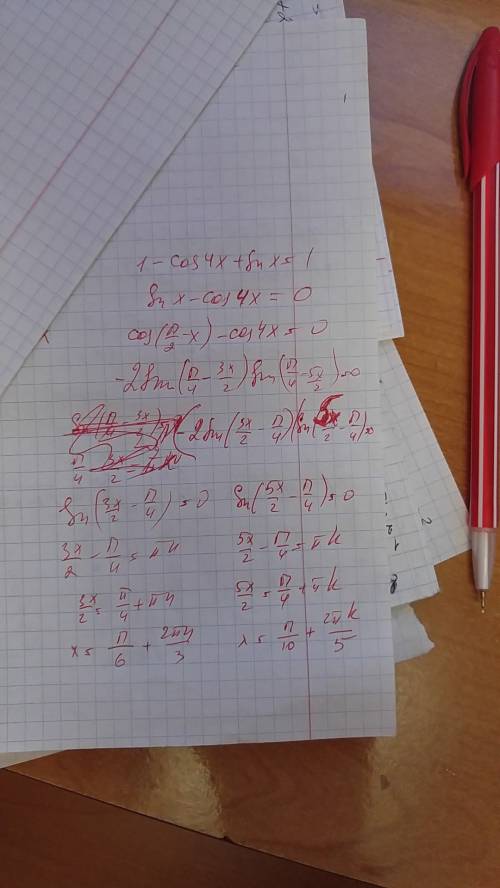 1 - cos4x + sin x = 1
sin x - cos 4x = 0
cos(π/2 - x) - cos4x = 0
-2 sin(π/4 - 3x/2) sin(π/4 - 5x/2) = 0
2 sin(3x/2 - π/4) sin(5x/2 - π/4) = 0
sin(3x/2 - π/4) = 0 sin(5x/2 - π/4) = 0
3x/2 - π/4 = πn 5x/2 - π/4 = πk
3x/2 = π/4 + πn 5x/2 = π/4 + πk
x = π/6 + 2πn/3 x = π/10 + 2πk/5